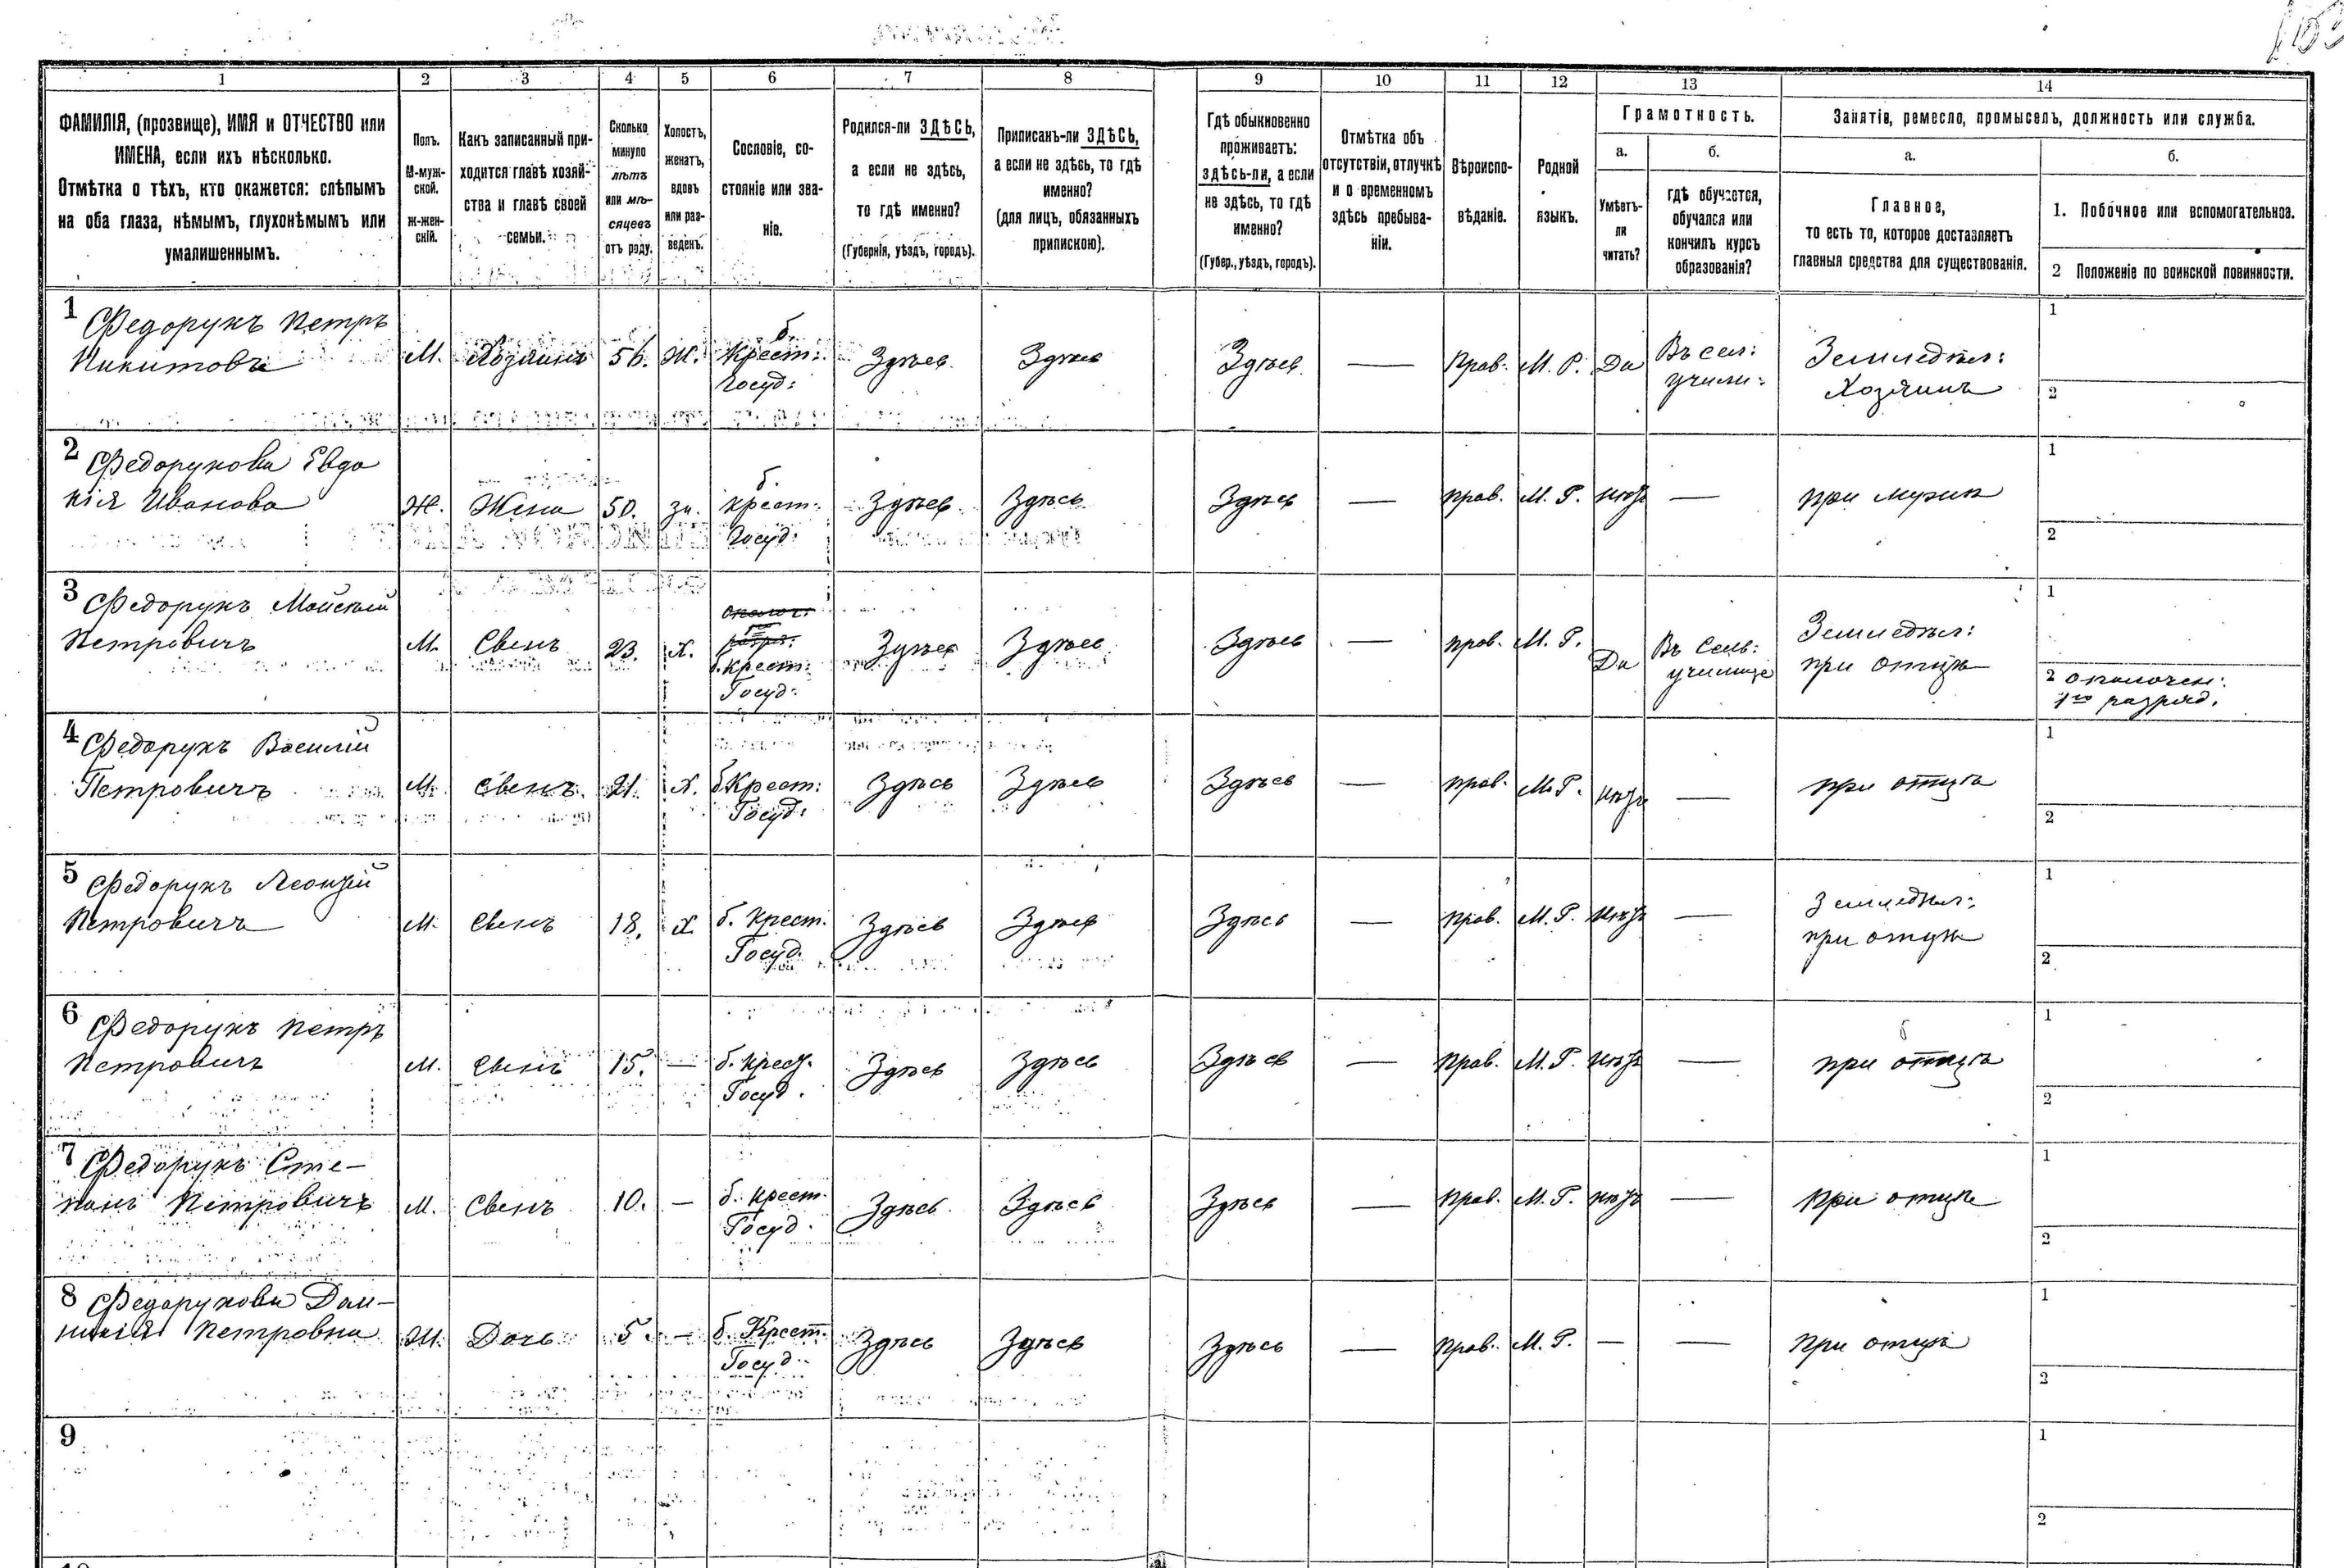 1 2 3 4 5 6 7 8 9 10 11 12 13 14
ФАМИЛІЯ, (прозвище), ИМЯ и ОТЧЕСТВО или
ИМЕНА, если ихъ нѣсколько.
Отмѣтка о тѣхъ, кто окажется: слѣпымъ
на оба глаза, нѣмымъ, глухонѣмымъ или
умалишеннымъ.
Полъ.
М-муж-
ской.
Ж-жен-
скій.
Какъ записанный при-
ходится главѣ хозяй-
ства и главѣ своей
семьи.
Сколько
минуло
лѣтъ
или мѣ-
сяцевъ
отъ роду.
Холостъ,
женатъ,
вдовъ
или раз-
веденъ.
Сословіе, со-
стояніе или зва-
ніе.
Родился-ли ЗДѢСЬ,
а если не здѣсь,
то гдѣ именно?
(Губернія, уѣздъ, городъ).
Приписанъ-ли ЗДѢСЬ,
а если не здѣсь, то гдѣ
именно?
(для лицъ, обязанныхъ
припискою).
Гдѣ обыкновенно
проживаетъ:
здѣсь-ли, а если
не здѣсь, то гдѣ
именно?
(Губер., уѣздъ, городъ).
Отмѣтка объ
отсутствіи, отлучкѣ
и о временномъ
здѣсь пребыва-
ніи.
Вѣроиспо-
вѣданіе.
Родной
языкъ.
Грамотность.
а.
Умѣетъ-
ли
читать?
б.
гдѣ обучается,
обучался или
кончилъ курсъ
образованія?
Занятіе, ремесло, промыселъ, должность или служба.
а.
Главное,
то есть то, которое доставляетъ
главныя средства для существованія.
б.
1. Побочное или вспомогательное.
2 Положеніе по воинской повинности.
1 Федорукъ Петръ
Никитовъ
М. Хозяинъ 56. Ж.
б.
Крест:
Госуд:
Здѣсь Здѣсь Здѣсь — Прав. М. Р. Да
Въ сел:
учили:
Земледѣл:
Хозяинъ
1
2
2 Федорукова Евдо
кія Иванова
Ж. Жена 50. за.
б.
крест:
Госуд:
Здѣсь Здѣсь Здѣсь — прав. М. Р. нѣтъ — при мужѣ
1
2
3 Федорукъ Мойсѣй
Петровичъ
М. Свенъ 23. Х.
б. крест:
Госуд:
Здѣсь Здѣсь Здѣсь — прав. М. Р. Да
Въ Сель:
училище
Земледѣл:
при отцѣ
1
2 ополочен:
1го разряд.
4 Федорукъ Василій
Петровичъ
М. Свенъ 21. Х.
б Крест:
Госуд:
Здѣсь Здѣсь Здѣсь — прав. М. Р. нѣтъ — при отцѣ
1
2
5 Федорукъ Леонтій
Петровичъ
М. Свенъ 18. Х
б. Крест.
Госуд.
Здѣсь Здѣсь Здѣсь — прав. М. Р. нѣтъ —
Земледѣл:
при отцѣ
1
2
6 Федорукъ Петръ
Петровичъ
М. Свенъ 15. —
б. Крест.
Госуд.
Здѣсь Здѣсь Здѣсь — прав. М. Р. нѣтъ — при отцѣ
1
2
7 Федорукъ Сте-
панъ Петровичъ
М. Свенъ 10. —
б. крест.
Госуд.
Здѣсь Здѣсь Здѣсь — прав. М. Р. нѣтъ — при отцѣ
1
2
8 Федорукова Дом-
никія Петровна
Ж. Дочь 5. —
б. Крест.
Госуд.
Здѣсь Здѣсь Здѣсь — прав. М. Р. — — при отцѣ
1
2
9
1
2